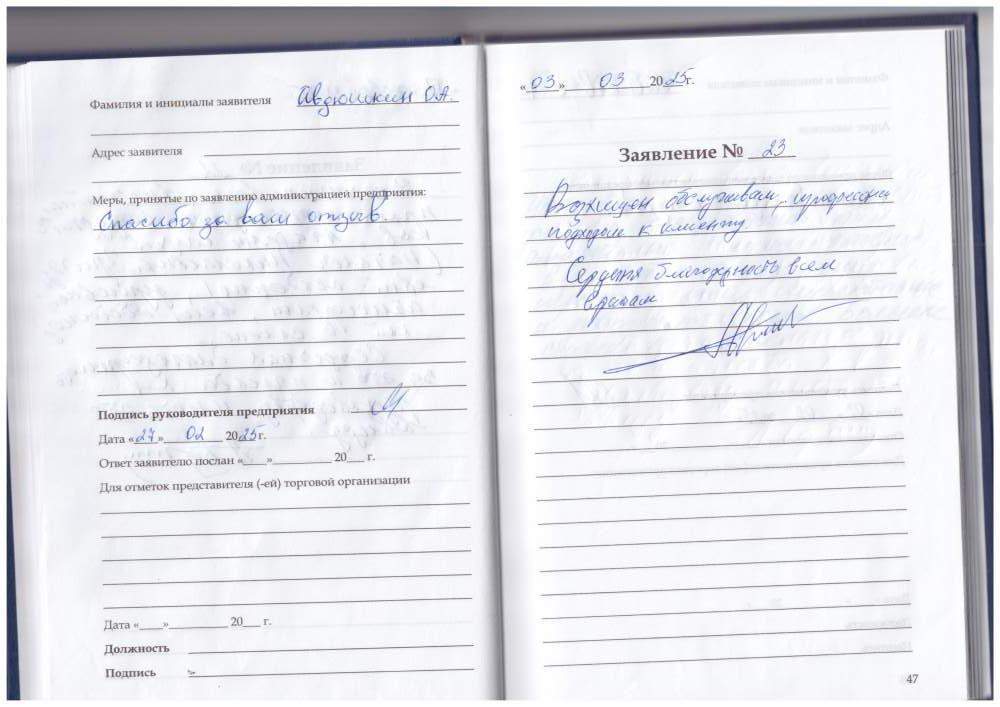 Фамилия и инициалы заявителя Авдюшкин О.А.
Адрес заявителя
Меры, принятые по заявлению администрацией предприятия:
Спасибо за ваш отзыв.
Подпись руководителя предприятия
Дата «27» 02 2025 г.
Ответ заявителю послан «___»_________ 20___ г.
Для отметок представителя (-ей) торговой организации
Дата «____»_________ 20___ г.
Должность
Подпись
«03» 03 2025 г.
Заявление № 23
Восхищен
подходом к клиенту
благодарность всем
врачам
47